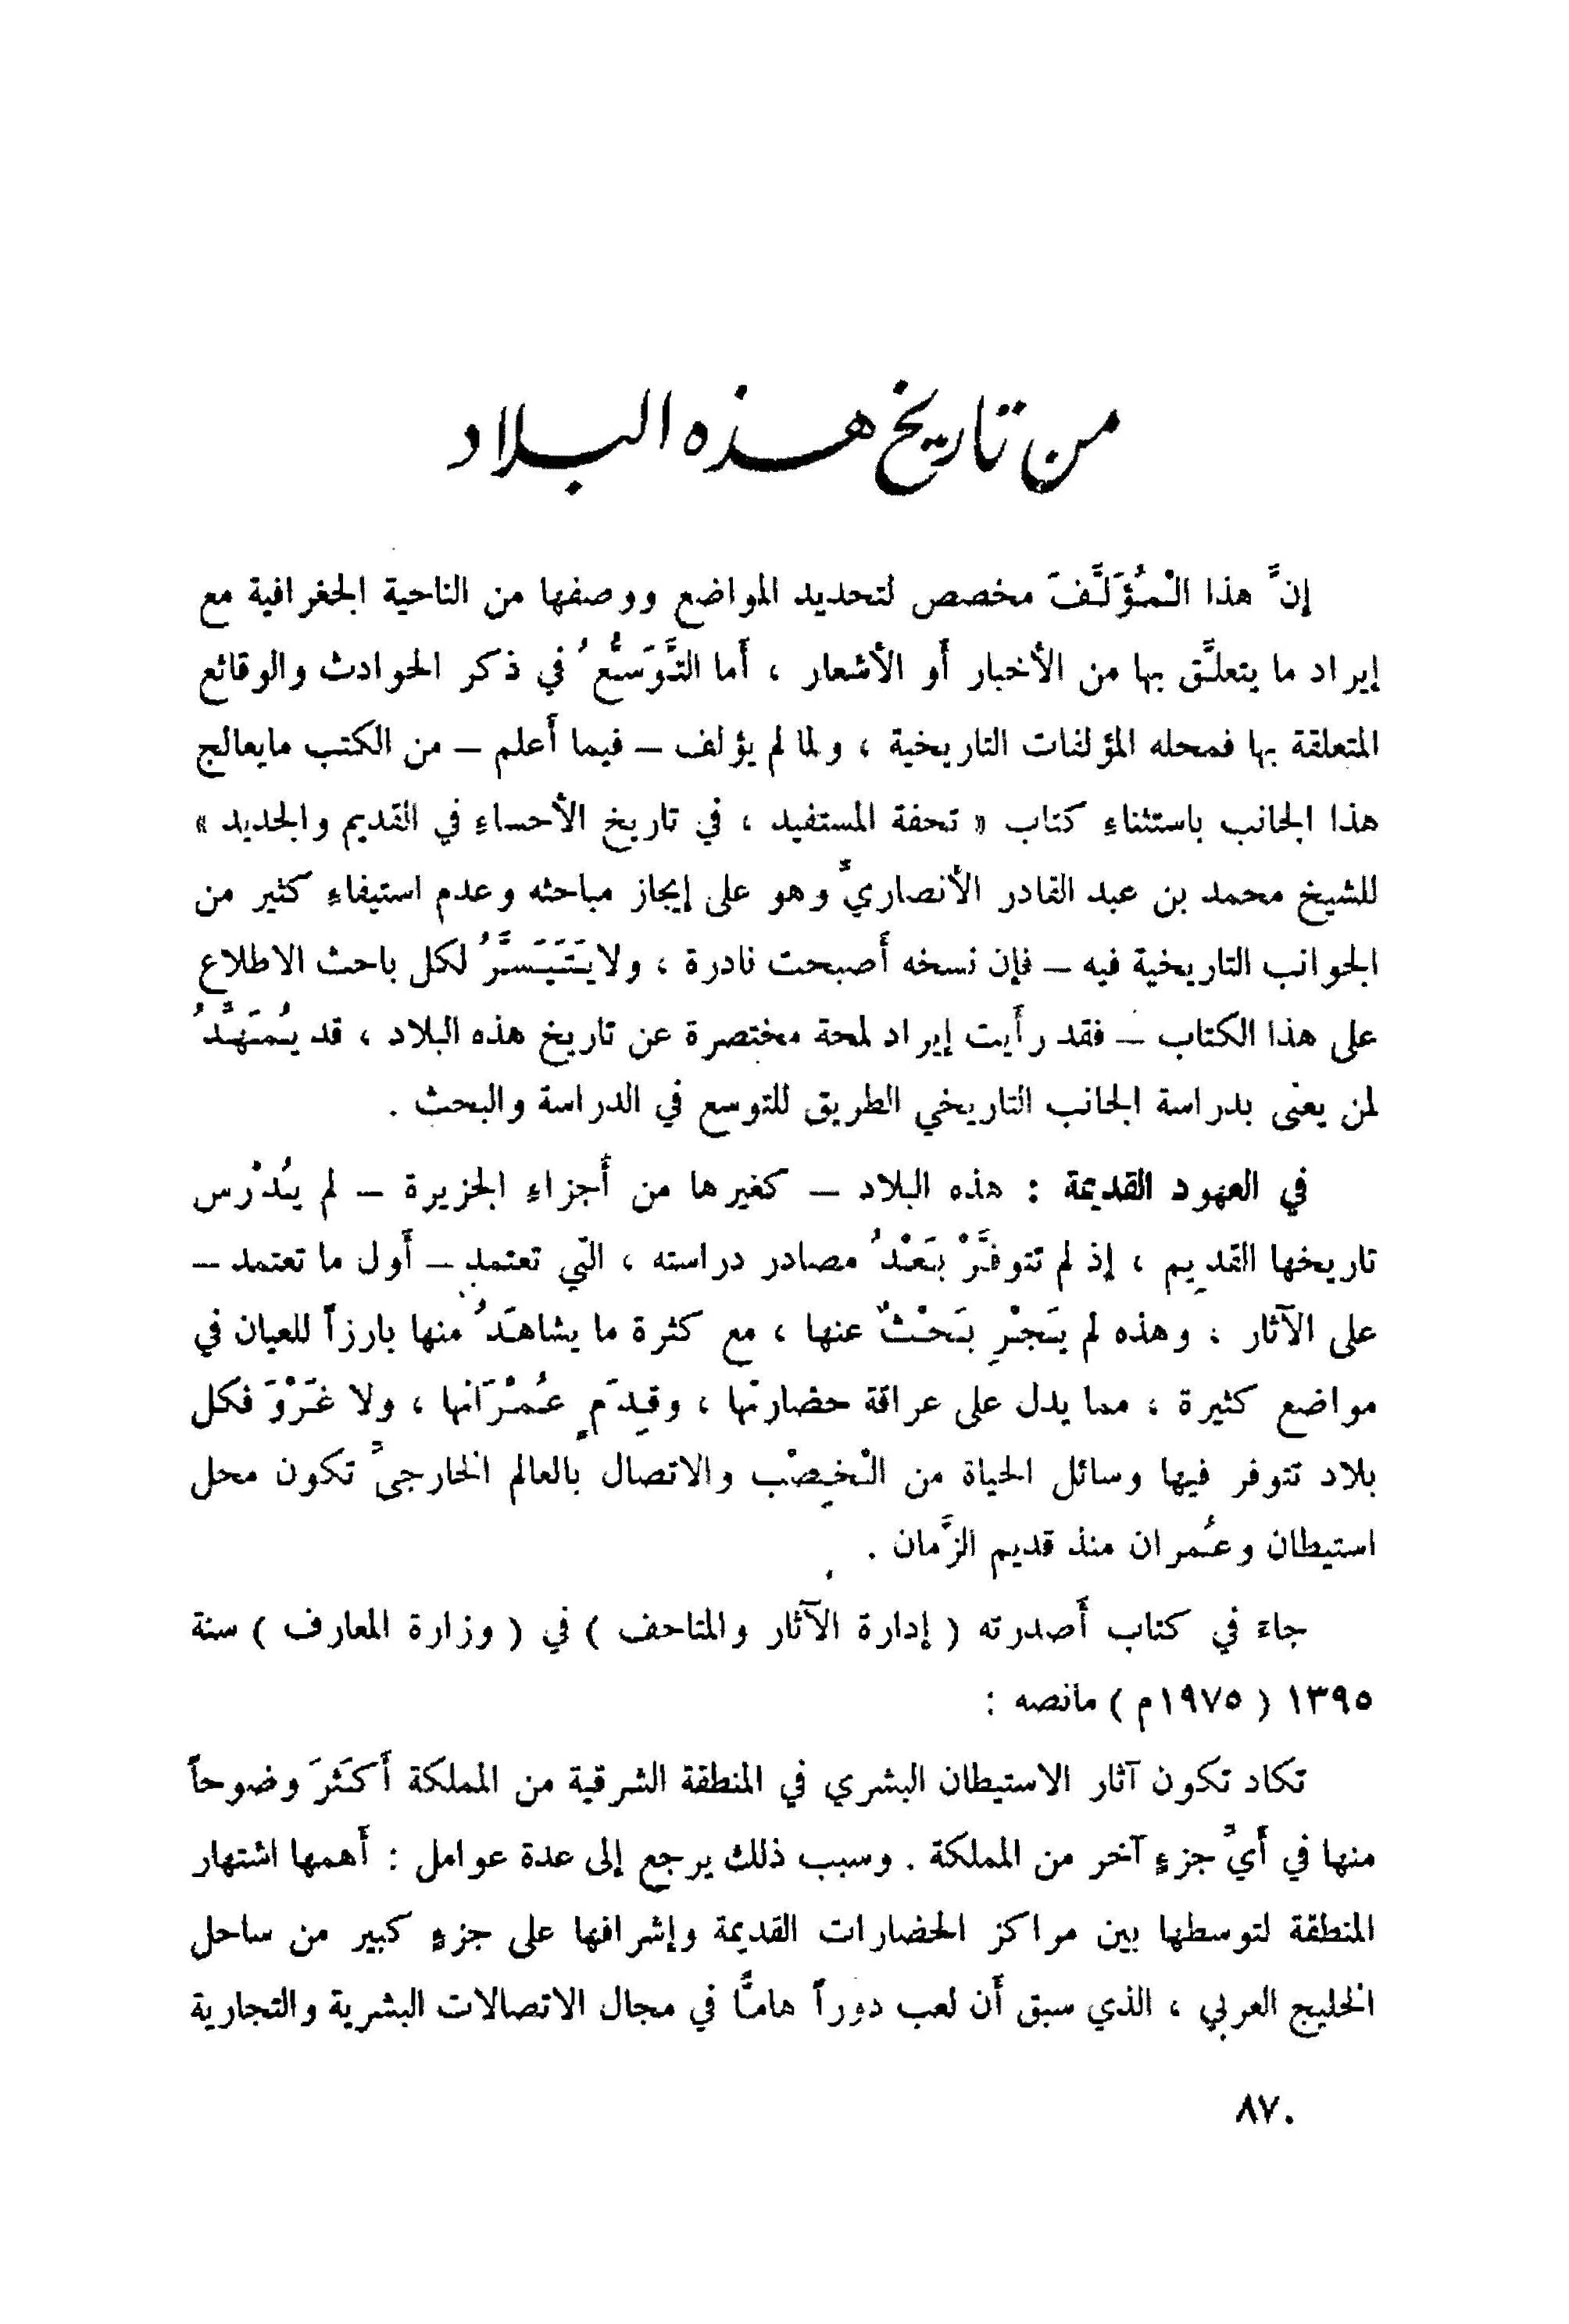 من تاريخ هذه البلاد
إنَّ هذا الْمُؤَلَّفَ مخصص لتحديد المواضع ووصفها من الناحية الجغرافية مع
إيراد ما يتعلَّق بها من الأخبار أو الأشعار ، أما التَّوَسُّعُ في ذكر الحوادث والوقائع
المتعلقة بها فمحله المؤلفات التاريخية ، ولما لم يؤلف – فيما أعلم – من الكتب مايعالج
هذا الجانب باستثناء كتاب « تحفة المستفيد ، في تاريخ الأحساء في القديم والجديد »
للشيخ محمد بن عبد القادر الأنصاريّ وهو على إيجاز مباحثه وعدم استيفاء كثير من
الجوانب التاريخية فيه – فإن نسخه أصبحت نادرة ، ولايَتَيَسَّرُ لكل باحث الاطلاع
على هذا الكتاب – فقد رأيت إيراد لمحة مختصرة عن تاريخ هذه البلاد ، قد يُمَهِّدُ
لمن يعنى بدراسة الجانب التاريخي الطريق للتوسع في الدراسة والبحث .
في العهود القديمة : هذه البلاد – كغيرها من أجزاء الجزيرة – لم يُدْرس
تاريخها القديم ، إذ لم تتوفَّرْ بَعْدُ مصادر دراسته ، التي تعتمد – أول ما تعتمد –
على الآثار ، وهذه لم يَجْرِ بَحْثٌ عنها ، مع كثرة ما يشاهَدُ منها بارزاً للعيان في
مواضع كثيرة ، مما يدل على عراقة حضارتها ، وقِدَمِ عُمْرَانها ، ولا غَرْوَ فكل
بلاد تتوفر فيها وسائل الحياة من الْخِصْب والاتصال بالعالم الخارجيّ تكون محل
استيطان وعُمران منذ قديم الزَّمان .
جاءَ في كتاب أصدرته ( إدارة الآثار والمتاحف ) في ( وزارة المعارف ) سنة
١٣٩٥ ( ١٩٧٥م ) مانصه :
تكاد تكون آثار الاستيطان البشري في المنطقة الشرقية من المملكة أكثَرَ وضوحاً
منها في أيّ جزءٍ آخر من المملكة . وسبب ذلك يرجع إلى عدة عوامل : أهمها اشتهار
المنطقة لتوسطها بين مراكز الحضارات القديمة وإشرافها على جزءٍ كبير من ساحل
الخليج العربي ، الذي سبق أن لعب دوراً هامًّا في مجال الاتصالات البشرية والتجارية
٨٧٠